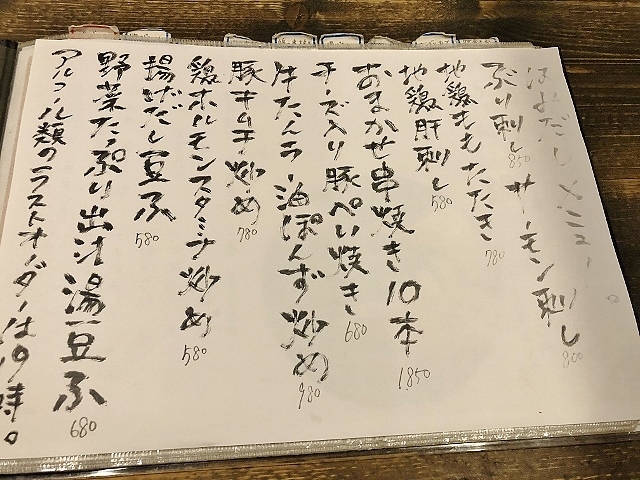 はみだしメニュー。
ぶり刺し 850 サーモン刺し 800
地鶏ももたたき 780
地鶏肝刺し 580
おまかせ串焼き10本 1850
チーズ入り豚ぺい焼き 680
牛たんラー油ぽんず炒め 980
豚キムチ炒め 780
鶏ホルモンスタミナ炒め 580
揚げだし豆ふ 580
野菜たっぷり出汁湯豆ふ 680
アルコール類のラストオーダーは19時。